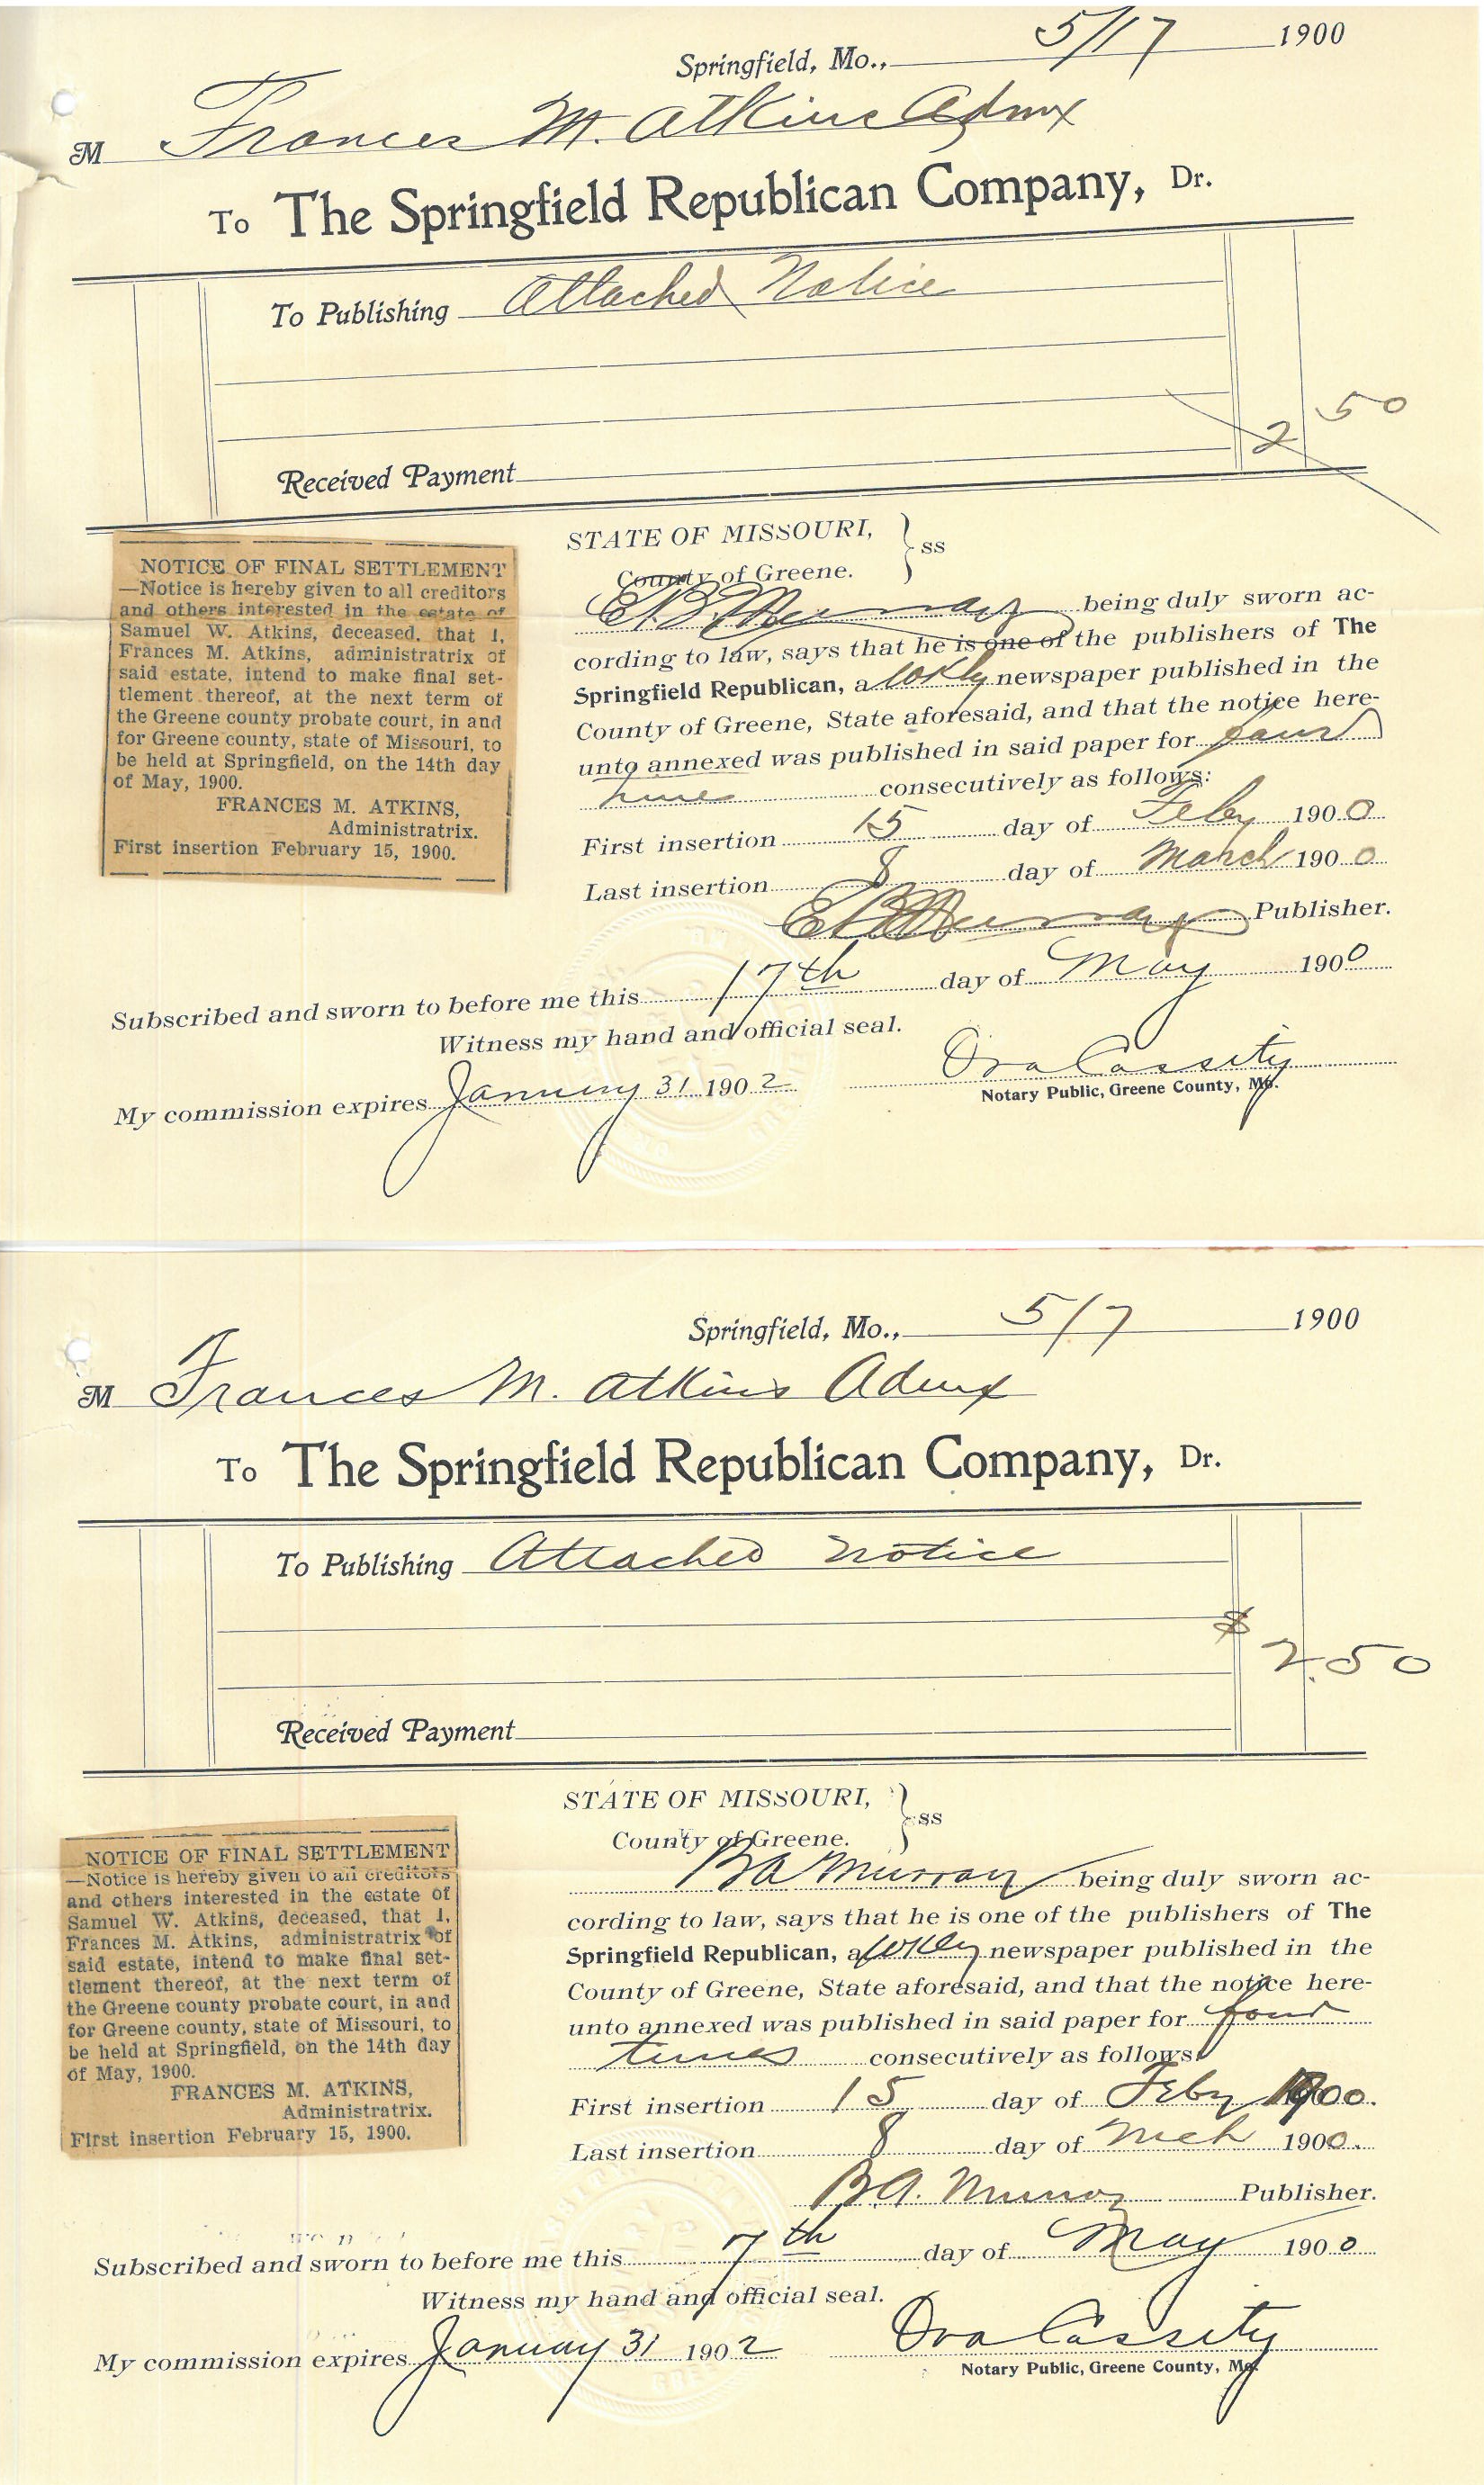 Springfield, Mo., 5/17 1900
M Frances M. Atkins Admx
To The Springfield Republican Company, Dr.
To Publishing Attached Notice
2 50
Received Payment
NOTICE OF FINAL SETTLEMENT
—Notice is hereby given to all creditors
and others interested in the estate of
Samuel W. Atkins, deceased, that I,
Frances M. Atkins, administratrix of
said estate, intend to make final set-
tlement thereof, at the next term of
the Greene county probate court, in and
for Greene county, state of Missouri, to
be held at Springfield, on the 14th day
of May, 1900.
FRANCES M. ATKINS,
Administratrix.
First insertion February 15, 1900.
STATE OF MISSOURI, } ss
County of Greene.
E.B. Murray being duly sworn ac-
cording to law, says that he is one of the publishers of The
Springfield Republican, a wkly newspaper published in the
County of Greene, State aforesaid, and that the notice here-
unto annexed was published in said paper for four
times consecutively as follows:
First insertion 15 day of Feby 1900
Last insertion 8 day of March 1900
E.B. Murray Publisher.
Subscribed and sworn to before me this 17th day of May 1900
Witness my hand and official seal.
My commission expires January 31 1902
Ova Cassity
Notary Public, Greene County, Mo.
Springfield, Mo., 5/7 1900
M Frances M. Atkins Admx
To The Springfield Republican Company, Dr.
To Publishing Attached Notice
$ 2.50
Received Payment
NOTICE OF FINAL SETTLEMENT
—Notice is hereby given to all creditors
and others interested in the estate of
Samuel W. Atkins, deceased, that I,
Frances M. Atkins, administratrix of
said estate, intend to make final set-
tlement thereof, at the next term of
the Greene county probate court, in and
for Greene county, state of Missouri, to
be held at Springfield, on the 14th day
of May, 1900.
FRANCES M. ATKINS,
Administratrix.
First insertion February 15, 1900.
STATE OF MISSOURI, } ss
County of Greene.
B A Murray being duly sworn ac-
cording to law, says that he is one of the publishers of The
Springfield Republican, a wkly newspaper published in the
County of Greene, State aforesaid, and that the notice here-
unto annexed was published in said paper for four
times consecutively as follows:
First insertion 15 day of Feby 1900.
Last insertion 8 day of Mch 1900.
B.A. Murray Publisher.
Subscribed and sworn to before me this 7th day of May 1900
Witness my hand and official seal.
My commission expires January 31 1902
Ova Cassity
Notary Public, Greene County, Mo.